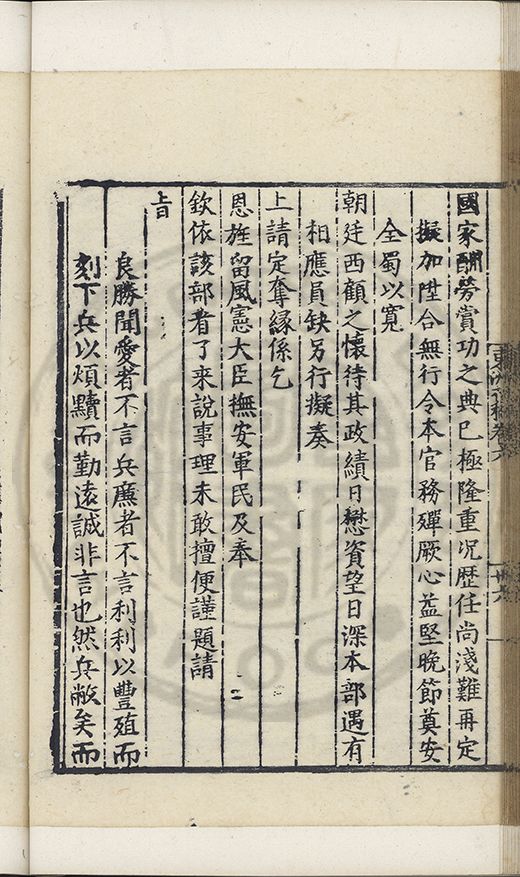 國家酬勞賞功之典已極隆重况歷任尚淺難再定
擬加陞合無行令本官務殫厥心益堅晚節奠安
全蜀以寬
朝廷西顧之懷待其政績日懋資望日深本部遇有
相應員缺另行擬奏
上請定奪緣係乞
恩旌留風憲大臣撫安軍民及奉
欽依該部看了來說事理未敢擅便謹題請
旨
良勝聞愛者不言兵廉者不言利利以豐殖而
刻下兵以煩黷而勤遠誠非言也然兵敝矣而